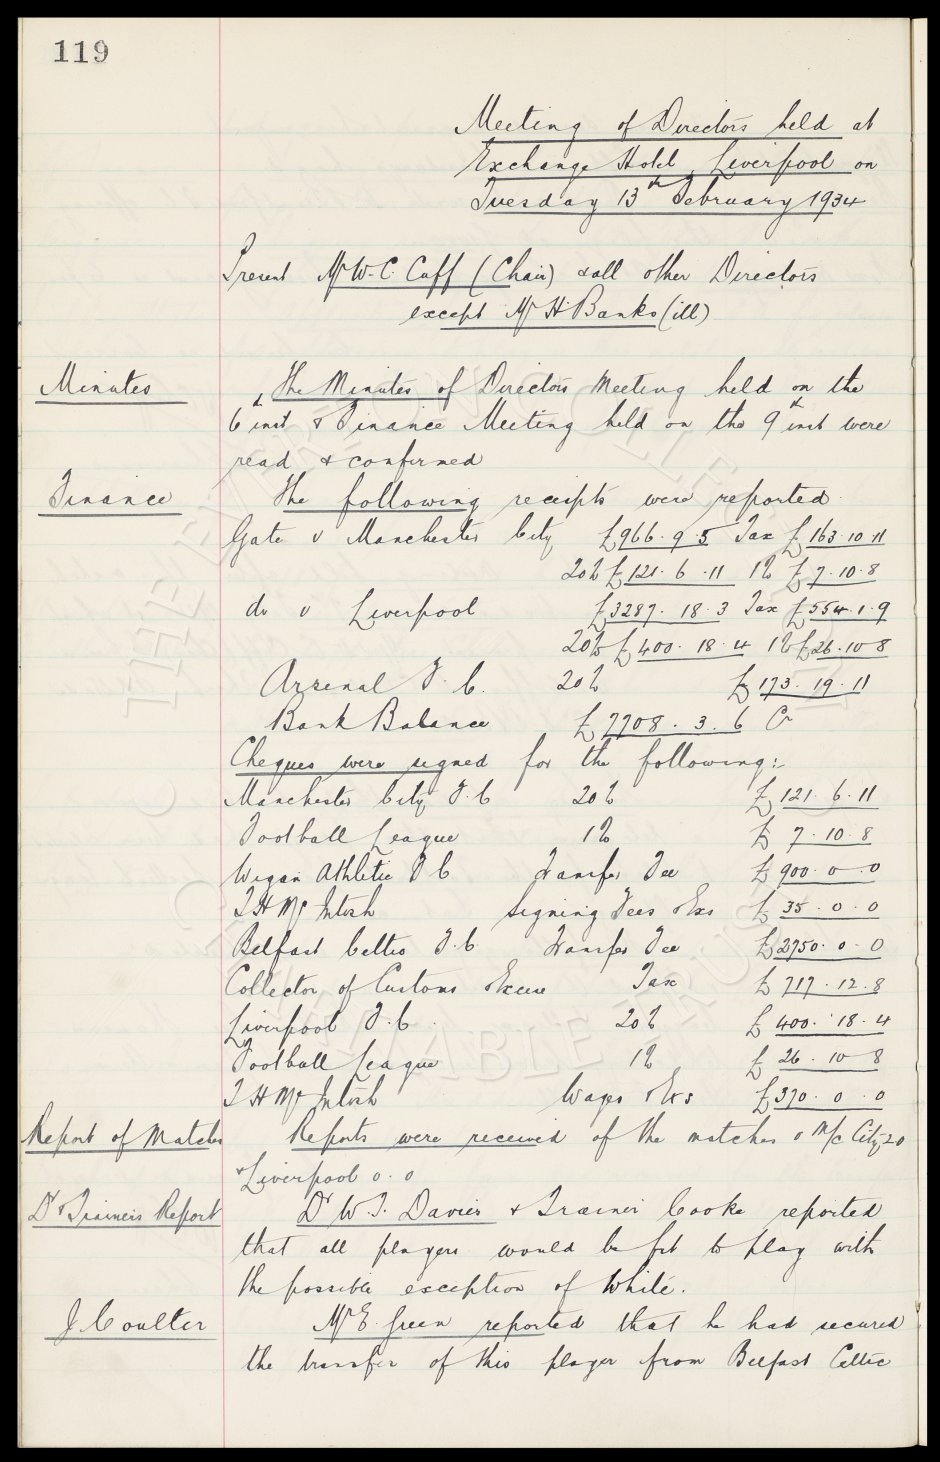 119
Meeting of Directors held at
Exchange Hotel, Liverpool on
Tuesday 13th February 1934
Present Mr W.C. Cuff (Chair) & all other Directors
except Mr H. Banks (ill)
Minutes The Minutes of Directors Meeting held on the
6th inst & Finance Meeting held on the 9th inst were
read & confirmed
Finance The following receipts were reported
Gate v Manchester City £966.9.5 Tax £163.10.11
20% £121.6.11 1% £7.10.8
do v Liverpool £3287.18.3 Tax £554.1.9
20% £400.18.4 1% £26.10.8
Arsenal F.C. 20% £173.19.11
Bank Balance £7708.3.6 Cr
Cheques were signed for the following:-
Manchester City F.C 20% £121.6.11
Football League 1% £7.10.8
Wigan Athletic F C Transfer Fee £900.0.0
T H McIntosh Signing Fees & Exs £35.0.0
Belfast Celtic F.C Transfer Fee £2750.0.0
Collector of Customs & Excise Tax £717.12.8
Liverpool F.C. 20% £400.18.4
Football League 1% £26.10.8
T H McIntosh Wages & Exs £370.0.0
Report of Matches Reports were received of the matches v M/c City 2 0
& Liverpool 0.0
Dr & Trainers Report Dr W.T. Davies & Trainer Cooke reported
that all players would be fit to play with
the possible exception of White.
J Coulter Mr E. Green reported that he had secured
the transfer of this player from Belfast Celtic